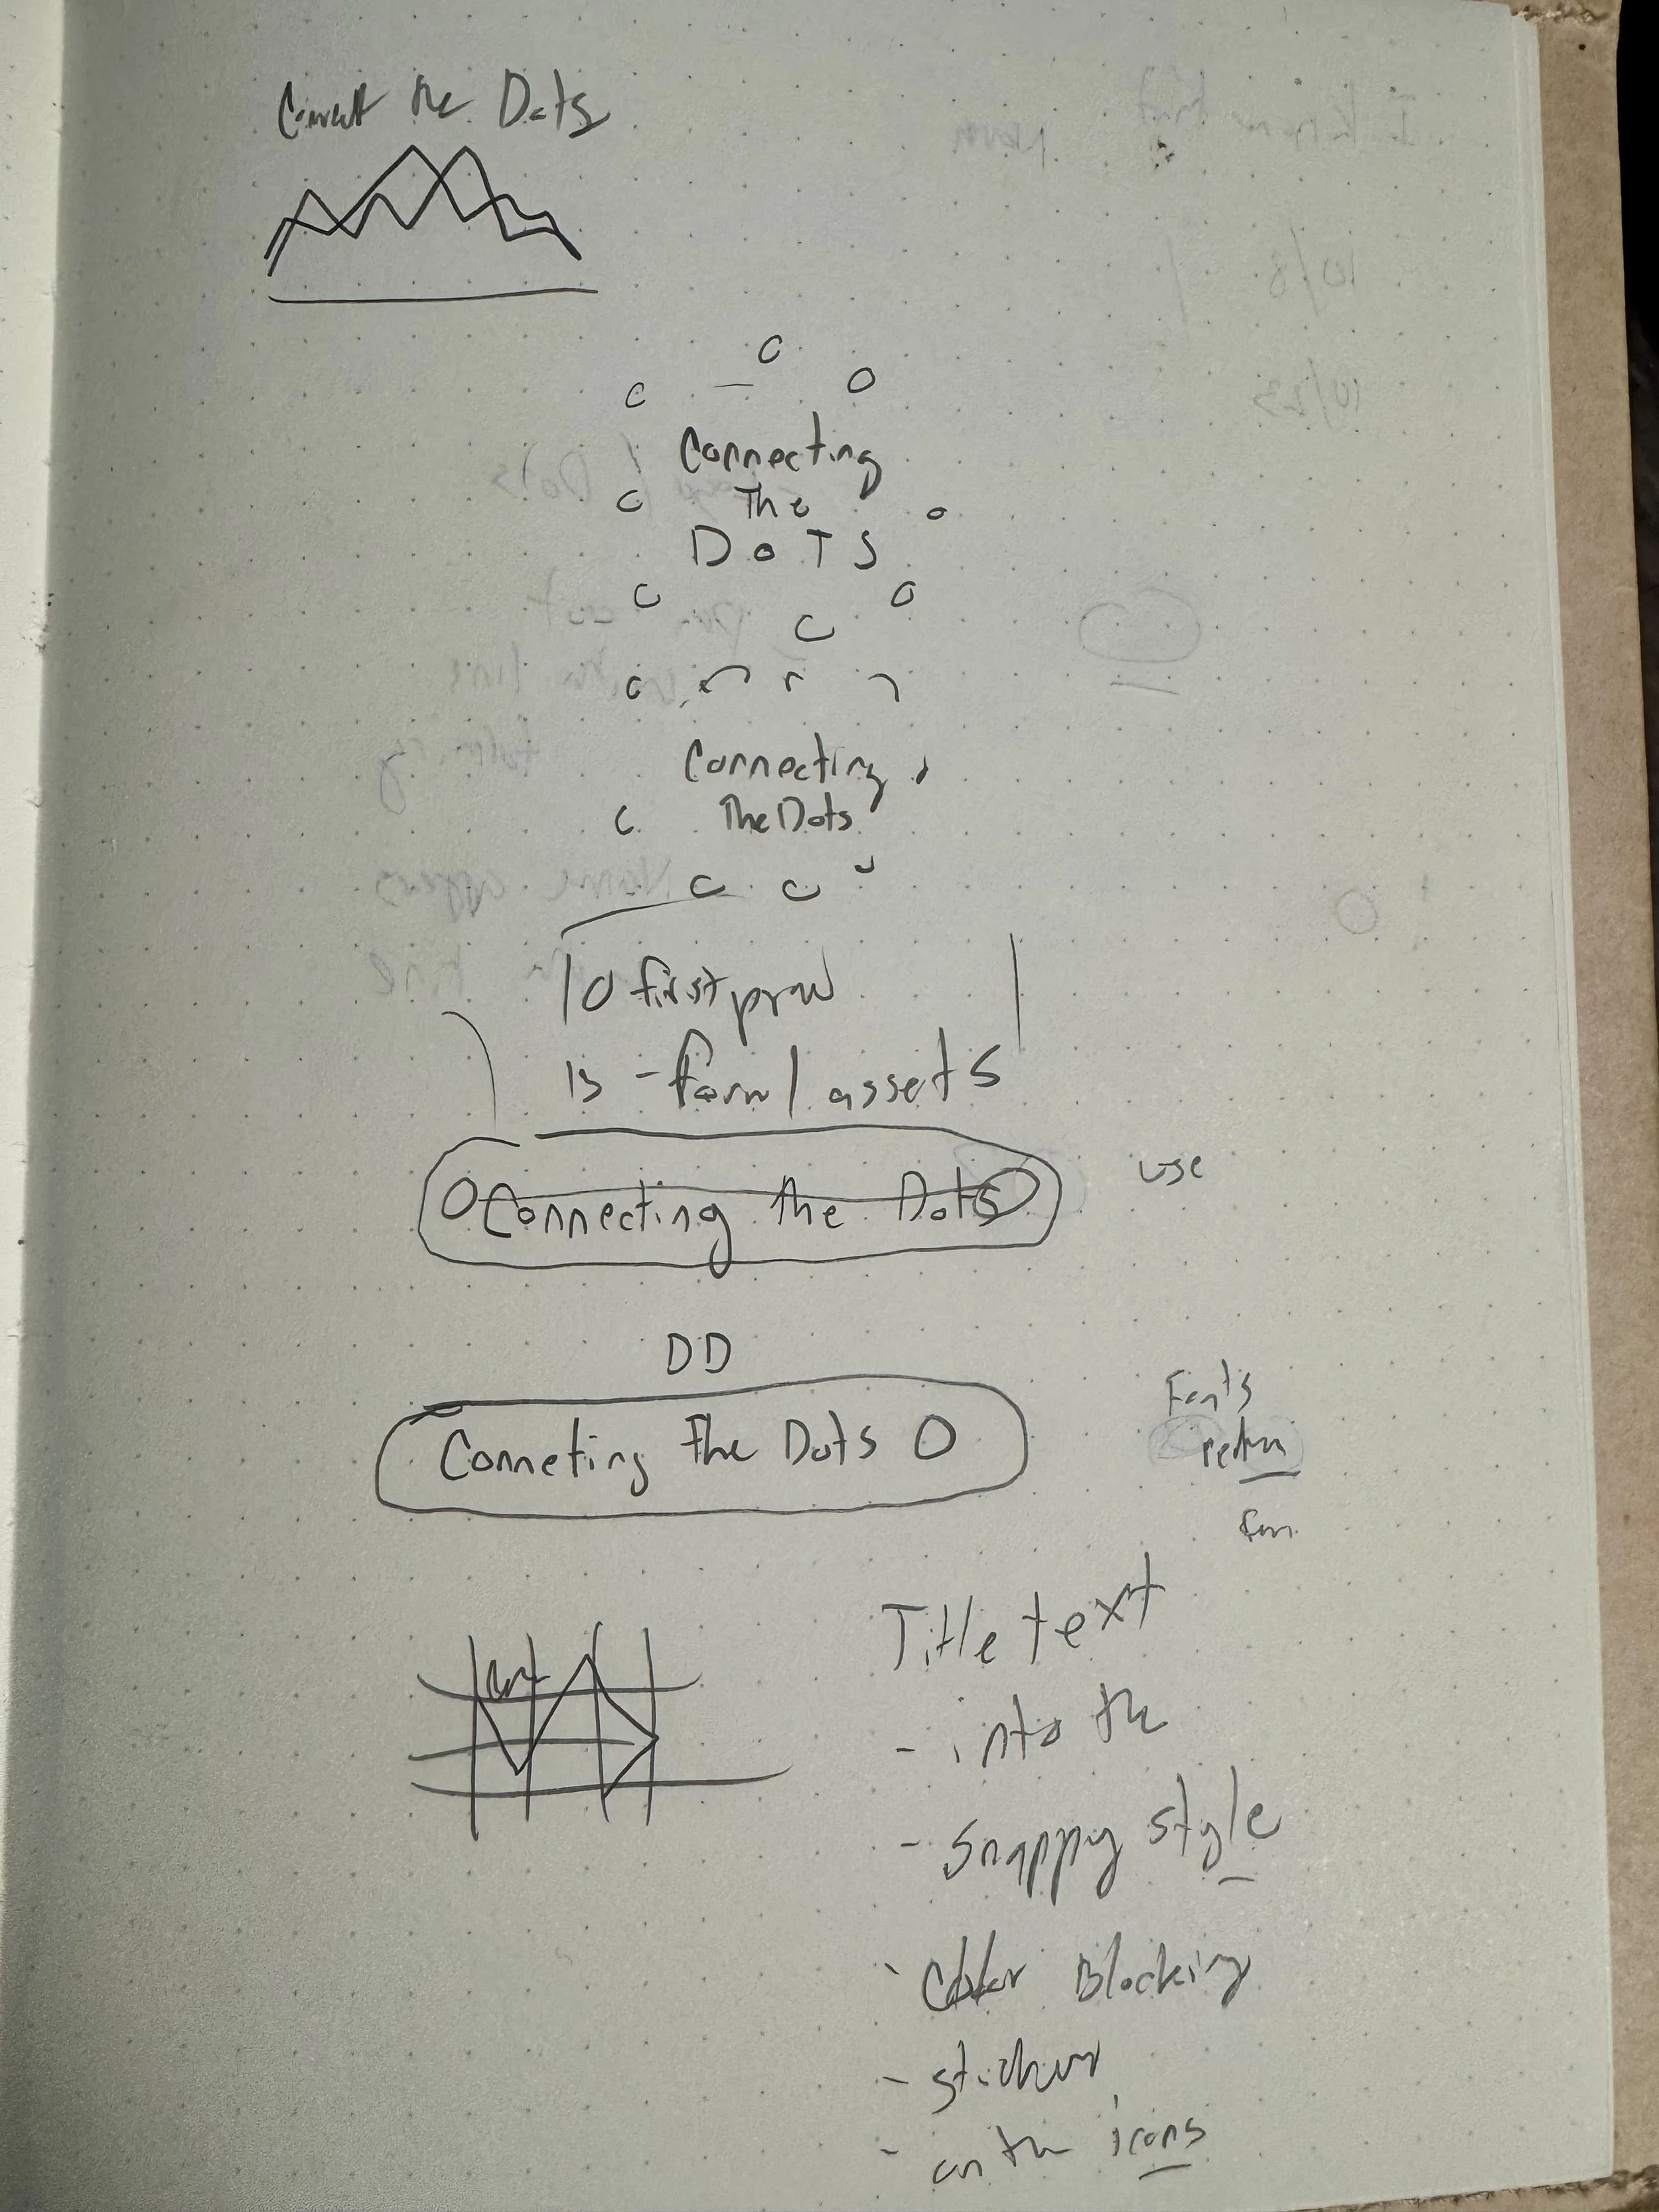 Connect the Dots
Connecting
The
DoTS
Connecting
The Dots
10 first
15 - assets
Connecting the Dots
use
DD
Conneting The Dots
Fonts
Title text
- into the
- Snappy style
- Color Blocking
- sticker
- on the icons